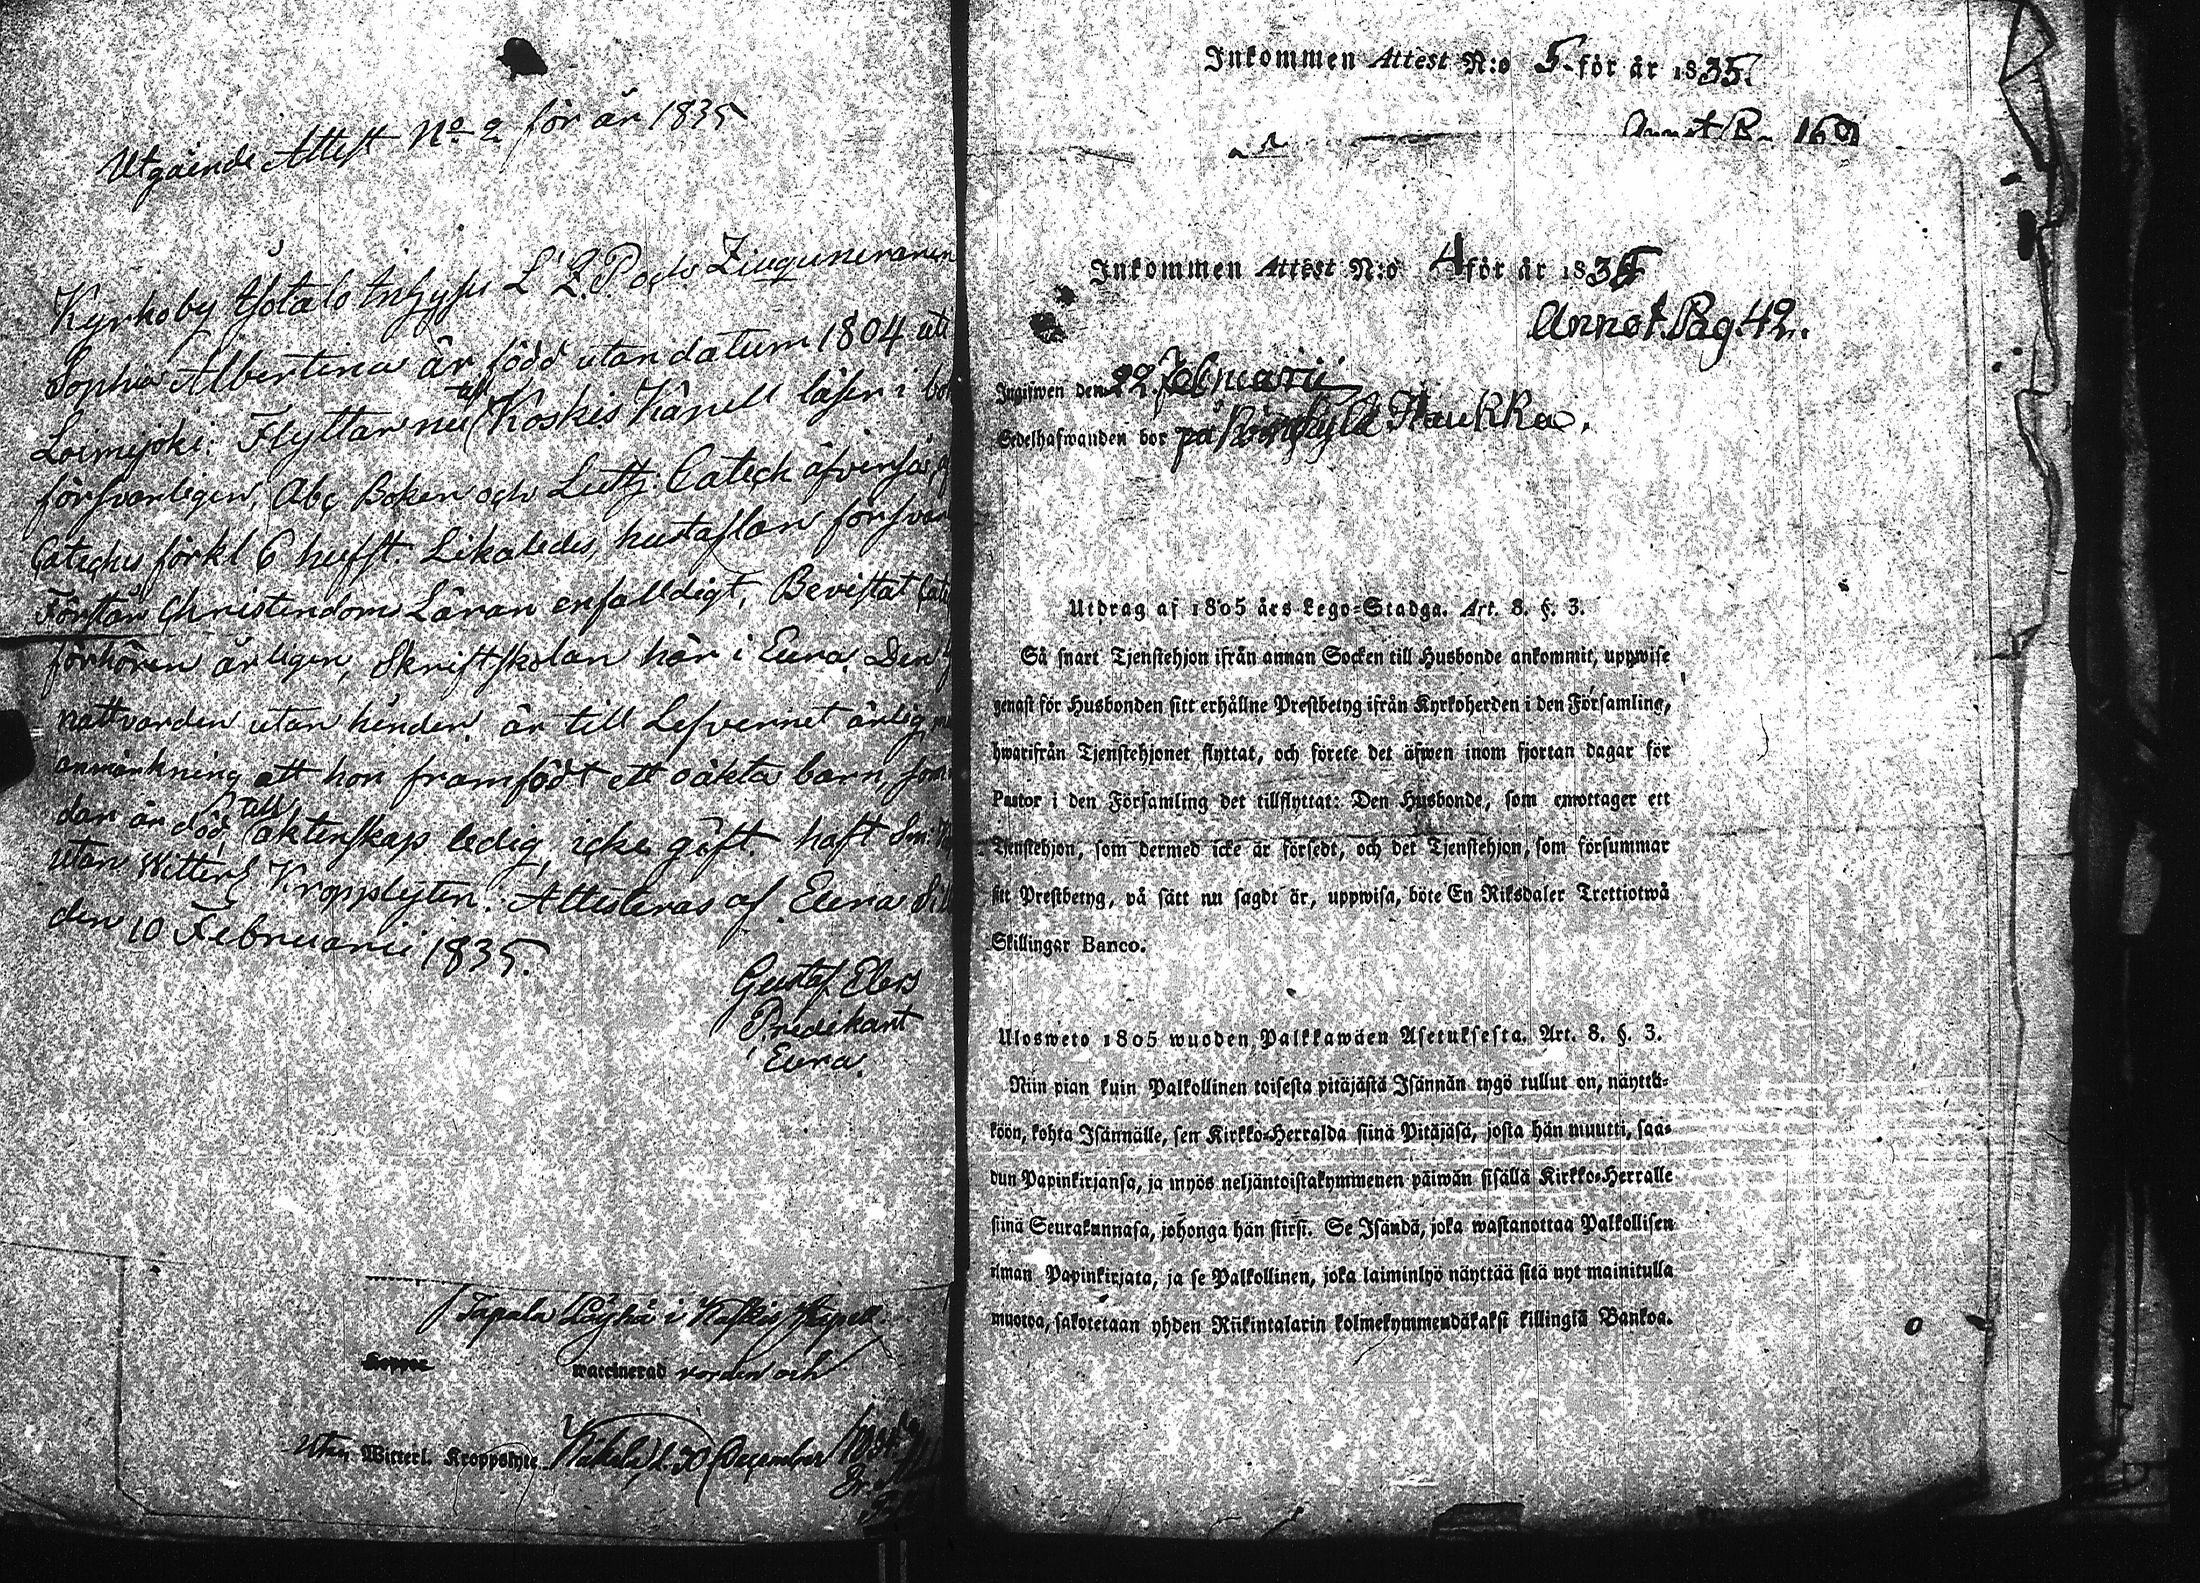 Utgående Attest No 2 för år 1835
Kyrkoby och Zieguneraren
Sophia Albertina är född utan datum 1804 uti
Loimijoki. Flyttar nu till Koskis läser i bok
försvarligen, Abc Boken och Luth. Catech äfvenså,
Cateches förkl 6 hufst. Likaledes, hustaflan försvar
Förstår Christendoms Läran enfalldigt, Bevistat
förhören årligen, Skriftskolan här i Eura. Den
nattvarden utan hinder. är till Lefvernet ärlig,
anmärkning att hon framfödt ett oäkta barn, som
dan är död, till äktenskap ledig, icke gift. haft
utan Witterl Kropslyten. Attesteras af Eura
den 10 Februarii 1835.
Gustaf Elers
Predikant
i Eura.
Tapala i Koskis Kapell.
waccinerad vorden och
utan Witterl. Kroppslyte. d. 30 December
Inkommen Attest N:o 5 för år 1835.
Annot P. 160
Inkommen Attest N:o 4 för år 1835
Annot. Pag. 42.
Ingifwen den 22 Februarii
Sedelhafwanden bor på Haukka.
Utdrag af 1805 års Lego-Stadga. Art. 8. §. 3.
Så snart Tjenstehjon ifrån annan Socken till Husbonde ankommit, uppwise
genast för Husbonden sitt erhållne Prestbetyg ifrån Kyrkoherden i den Församling,
hwarifrån Tjenstehjonet flyttat, och förete det äfwen inom fjortan dagar för
Pastor i den Församling det tillflyttat: Den Husbonde, som emottager ett
Tjenstehjon, som dermed icke är försedt, och det Tjenstehjon, som försummar
sitt Prestbetyg, på sätt nu sagdt är, uppwisa, böte En Riksdaler Trettiotwå
Skillingar Banco.
Ulosweto 1805 wuoden Palkkawäen Asetuksesta. Art. 8. §. 3.
Niin pian kuin Palkollinen toisesta pitäjästä Isännän tygö tullut on, näyttä-
köön, kohta Isännälle, sen Kirkko-Herralda siinä Pitäjäsä, josta hän muutti, saa-
dun Papinkirjansa, ja myös neljäntoistakymmenen päiwän sisällä Kirkko-Herralle
siinä Seurakunnasa, johonga hän siirsi. Se Isändä, joka wastanottaa Palkollisen
ilman Papinkirjata, ja se Palkollinen, joka laiminlyö näyttää sitä nyt mainitulla
muotoa, sakotetaan yhden Riikintalarin kolmekymmendäkaksi killingiä Bankoa.